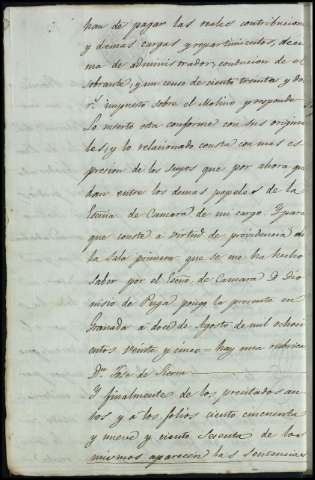 han de pagar las reales contribucion
y demas cargas y repartimientos, deci
ma de administrador, conducion de el
sobrante, y un censo de ciento treinta y do
r.s impuesto sobre el Molino y responde
Lo inserto esta conforme con sus origina
les, y lo relacionado consta con mas es
presion de los suyos que por ahora que
dan entre los demas papeles de la
Escña de Camara de mi cargo. Y para
que conste á virtud de providencia de
la Sala primera que se me ha hecho
saber por el Escño de Camara D. Dio
nisio de Puga pongo la presente en
Granada á doce de Agosto de mil ochoci
entos veinte y cinco = hay una rubrica
D.n José de Sierra
Y finalmente de los precitados au
tos y á los folios ciento cincuenta
y nueve y ciento sesenta de los
mismos aparecen las sentencias